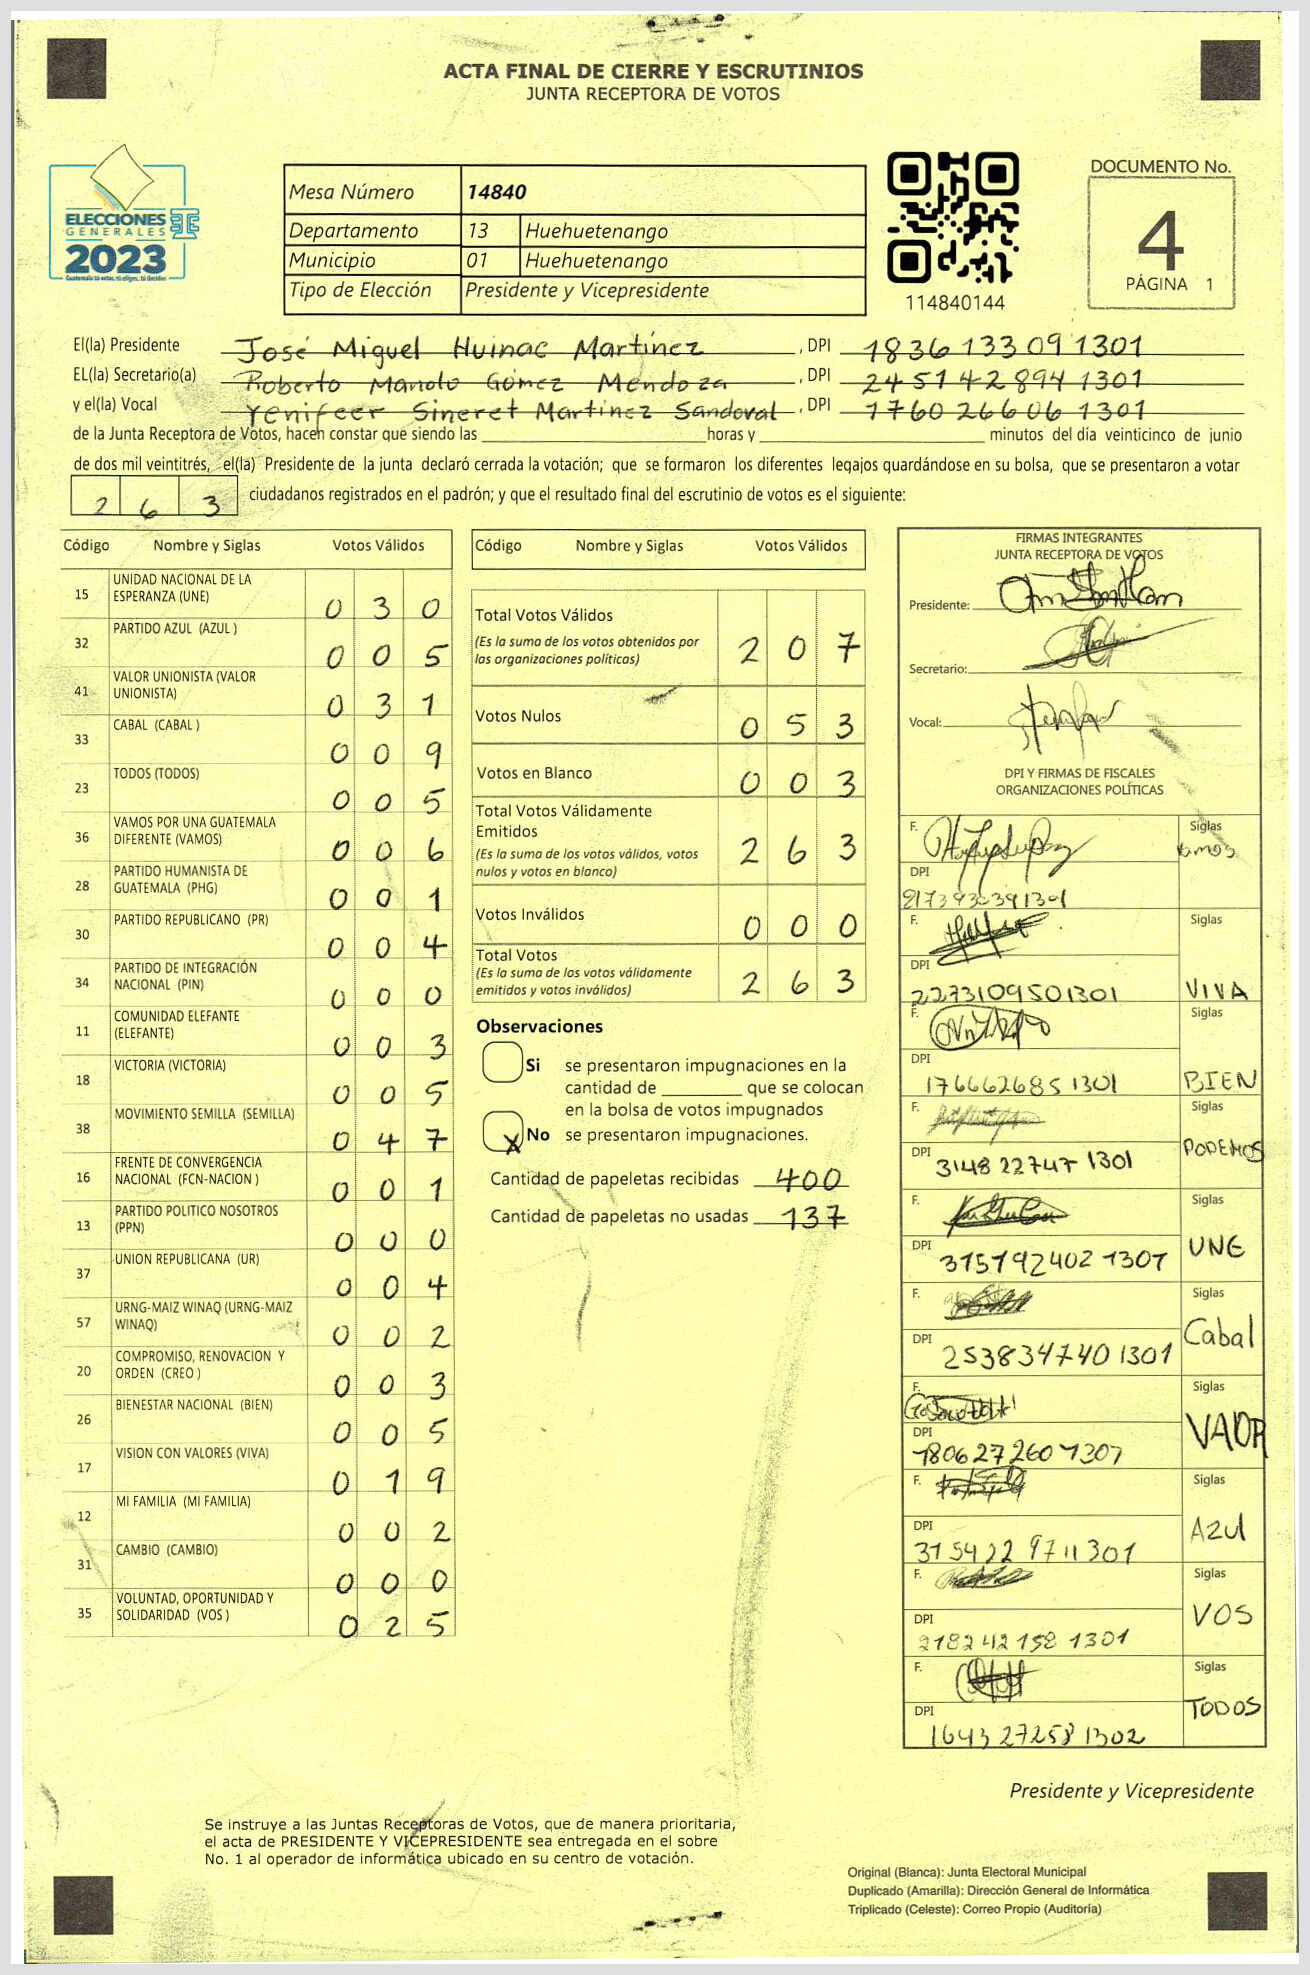 ACTA FINAL DE CIERRE Y ESCRUTINIOS
JUNTA RECEPTORA DE VOTOS
ELECCIONES
GENERALES
2023
Mesa Número 14840
Departamento 13 Huehuetenango
Municipio 01 Huehuetenango
Tipo de Elección Presidente y Vicepresidente
114840144
DOCUMENTO No.
4
PÁGINA 1
El(la) Presidente José Miguel Huinac Martínez , DPI 1836 133 09 1301
EL(la) Secretario(a) Roberto Manolo Gómez Mendoza , DPI 2451 42 894 1301
y el(la) Vocal Yenifeer Sineret Martínez Sandoval , DPI 1760 26606 1301
de la Junta Receptora de Votos, hacen constar que siendo las horas y minutos del día veinticinco de junio
de dos mil veintitrés, el(la) Presidente de la junta declaró cerrada la votación; que se formaron los diferentes legajos guardándose en su bolsa, que se presentaron a votar
2 6 3 ciudadanos registrados en el padrón; y que el resultado final del escrutinio de votos es el siguiente:
Código Nombre y Siglas Votos Válidos
15 UNIDAD NACIONAL DE LA ESPERANZA (UNE) 0 3 0
32 PARTIDO AZUL (AZUL ) 0 0 5
41 VALOR UNIONISTA (VALOR UNIONISTA) 0 3 1
33 CABAL (CABAL ) 0 0 9
23 TODOS (TODOS) 0 0 5
36 VAMOS POR UNA GUATEMALA DIFERENTE (VAMOS) 0 0 6
28 PARTIDO HUMANISTA DE GUATEMALA (PHG) 0 0 1
30 PARTIDO REPUBLICANO (PR) 0 0 4
34 PARTIDO DE INTEGRACIÓN NACIONAL (PIN) 0 0 0
11 COMUNIDAD ELEFANTE (ELEFANTE) 0 0 3
18 VICTORIA (VICTORIA) 0 0 5
38 MOVIMIENTO SEMILLA (SEMILLA) 0 4 7
16 FRENTE DE CONVERGENCIA NACIONAL (FCN-NACION ) 0 0 1
13 PARTIDO POLITICO NOSOTROS (PPN) 0 0 0
37 UNION REPUBLICANA (UR) 0 0 4
57 URNG-MAIZ WINAQ (URNG-MAIZ WINAQ) 0 0 2
20 COMPROMISO, RENOVACION Y ORDEN (CREO ) 0 0 3
26 BIENESTAR NACIONAL (BIEN) 0 0 5
17 VISION CON VALORES (VIVA) 0 1 9
12 MI FAMILIA (MI FAMILIA) 0 0 2
31 CAMBIO (CAMBIO) 0 0 0
35 VOLUNTAD, OPORTUNIDAD Y SOLIDARIDAD (VOS ) 0 2 5
Código Nombre y Siglas Votos Válidos
Total Votos Válidos 2 0 7
(Es la suma de los votos obtenidos por
las organizaciones políticas)
Votos Nulos 0 5 3
Votos en Blanco 0 0 3
Total Votos Válidamente
Emitidos 2 6 3
(Es la suma de los votos válidos, votos
nulos y votos en blanco)
Votos Inválidos 0 0 0
Total Votos 2 6 3
(Es la suma de los votos válidamente
emitidos y votos inválidos)
Observaciones
Si se presentaron impugnaciones en la
cantidad de que se colocan
en la bolsa de votos impugnados
X No se presentaron impugnaciones.
Cantidad de papeletas recibidas 400
Cantidad de papeletas no usadas 137
FIRMAS INTEGRANTES
JUNTA RECEPTORA DE VOTOS
Presidente:
Secretario:
Vocal:
DPI Y FIRMAS DE FISCALES
ORGANIZACIONES POLÍTICAS
F. Siglas
Vamos
DPI
F. Siglas
DPI
2273109501301 VIVA
F. Siglas
DPI
176662685 1301 BIEN
F. Siglas
DPI 3148 22747 1301 PODEMOS
F. Siglas
DPI 315192402 1301 UNE
F. Siglas
DPI 253834740 1301 Cabal
F. Siglas
DPI
1806272601301 VALOR
F. Siglas
DPI
Azul
F. Siglas
DPI
2182 42 158 1301 VOS
F. Siglas
DPI
1643 27258 1302 TODOS
Presidente y Vicepresidente
Se instruye a las Juntas Receptoras de Votos, que de manera prioritaria,
el acta de PRESIDENTE Y VICEPRESIDENTE sea entregada en el sobre
No. 1 al operador de informática ubicado en su centro de votación.
Original (Blanca): Junta Electoral Municipal
Duplicado (Amarilla): Dirección General de Informática
Triplicado (Celeste): Correo Propio (Auditoría)